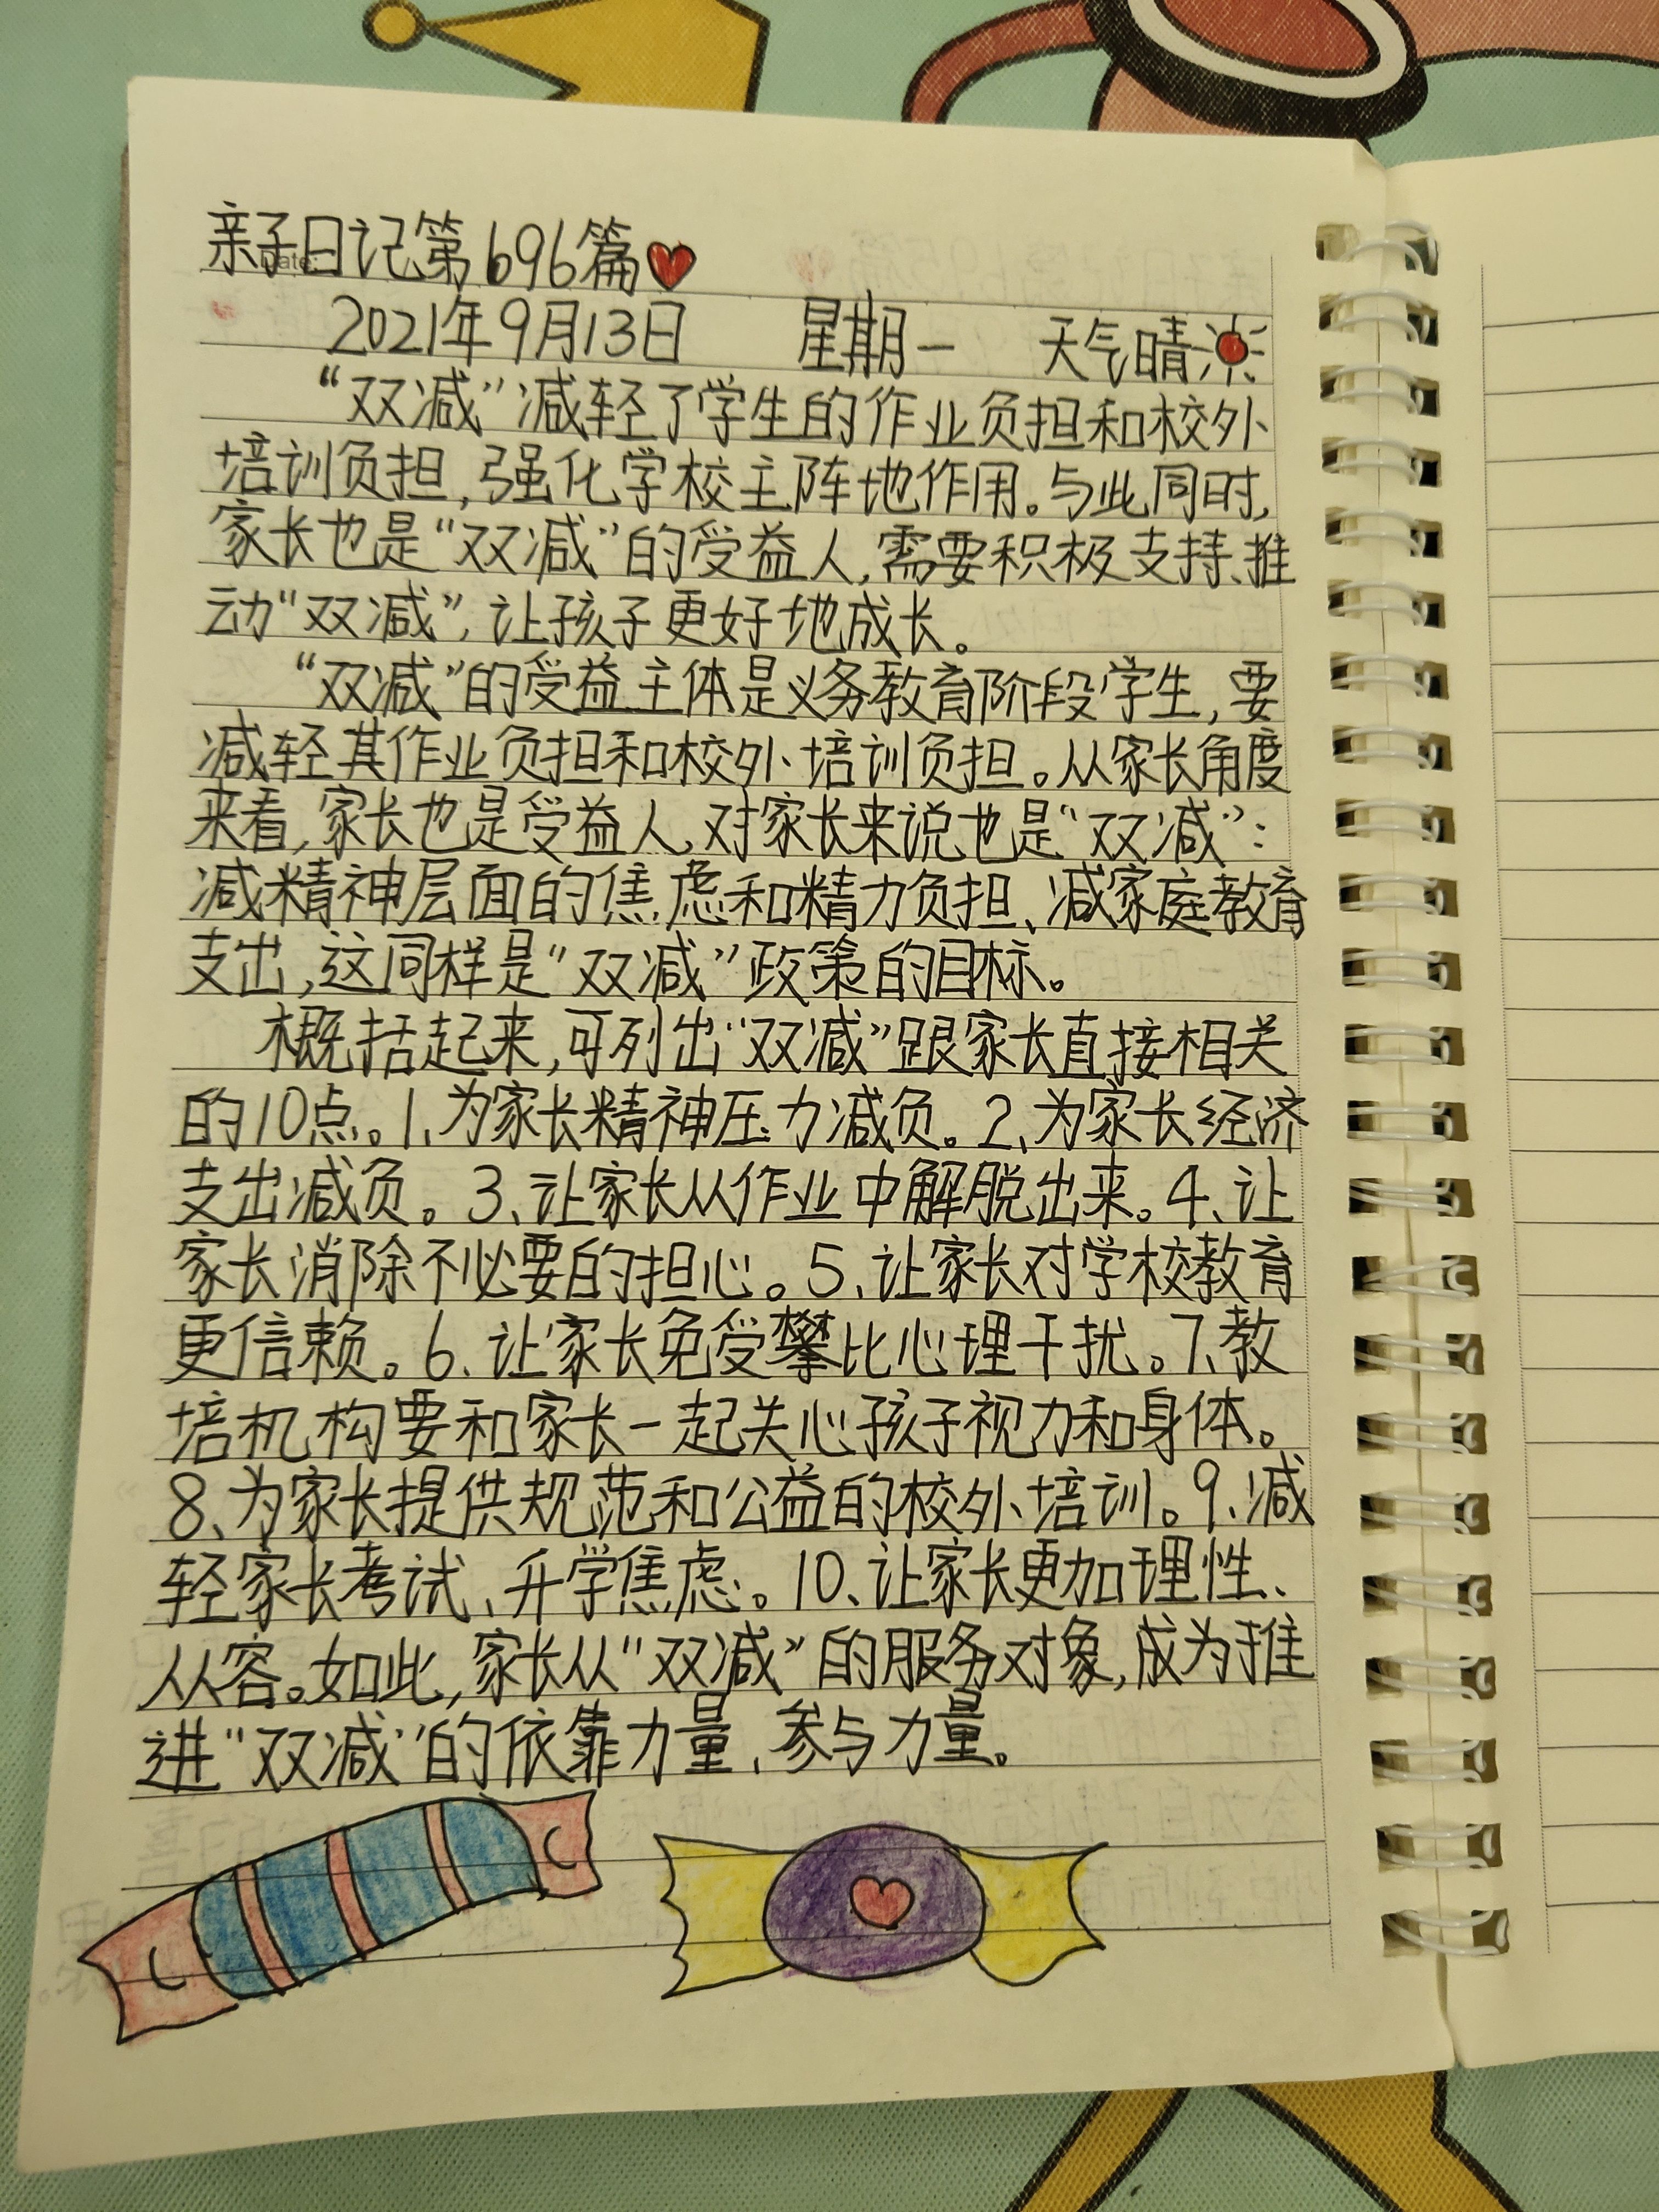 亲子日记第696篇
2021年9月13日 星期一 天气晴
“双减”减轻了学生的作业负担和校外
培训负担，强化学校主阵地作用。与此同时，
家长也是“双减”的受益人，需要积极支持、推
动“双减”，让孩子更好地成长。
“双减”的受益主体是义务教育阶段学生，要
减轻其作业负担和校外培训负担。从家长角度
来看，家长也是受益人，对家长来说也是“双减”：
减精神层面的焦虑和精力负担、减家庭教育
支出，这同样是“双减”政策的目标。
概括起来，可列出“双减”跟家长直接相关
的10点。1、为家长精神压力减负。2、为家长经济
支出减负。3、让家长从作业中解脱出来。4、让
家长消除不必要的担心。5、让家长对学校教育
更信赖。6、让家长免受攀比心理干扰。7、教
培机构要和家长一起关心孩子视力和身体。
8、为家长提供规范和公益的校外培训。9、减
轻家长考试、升学焦虑。10、让家长更加理性、
从容。如此，家长从“双减”的服务对象，成为推
进“双减”的依靠力量、参与力量。